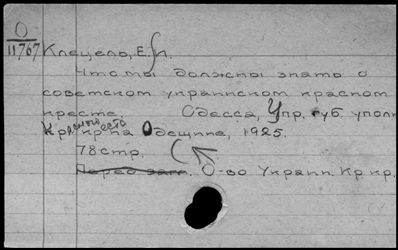 О
11767
Клецель, Е. Л.
Что мы должны знать о
советском украинском красном
кресте. Одесса, Упр. губ. уполн.
Красного креста на Одещине, 1925.
78 стр.
Перед загл. О-во Украин. Кр. кр.